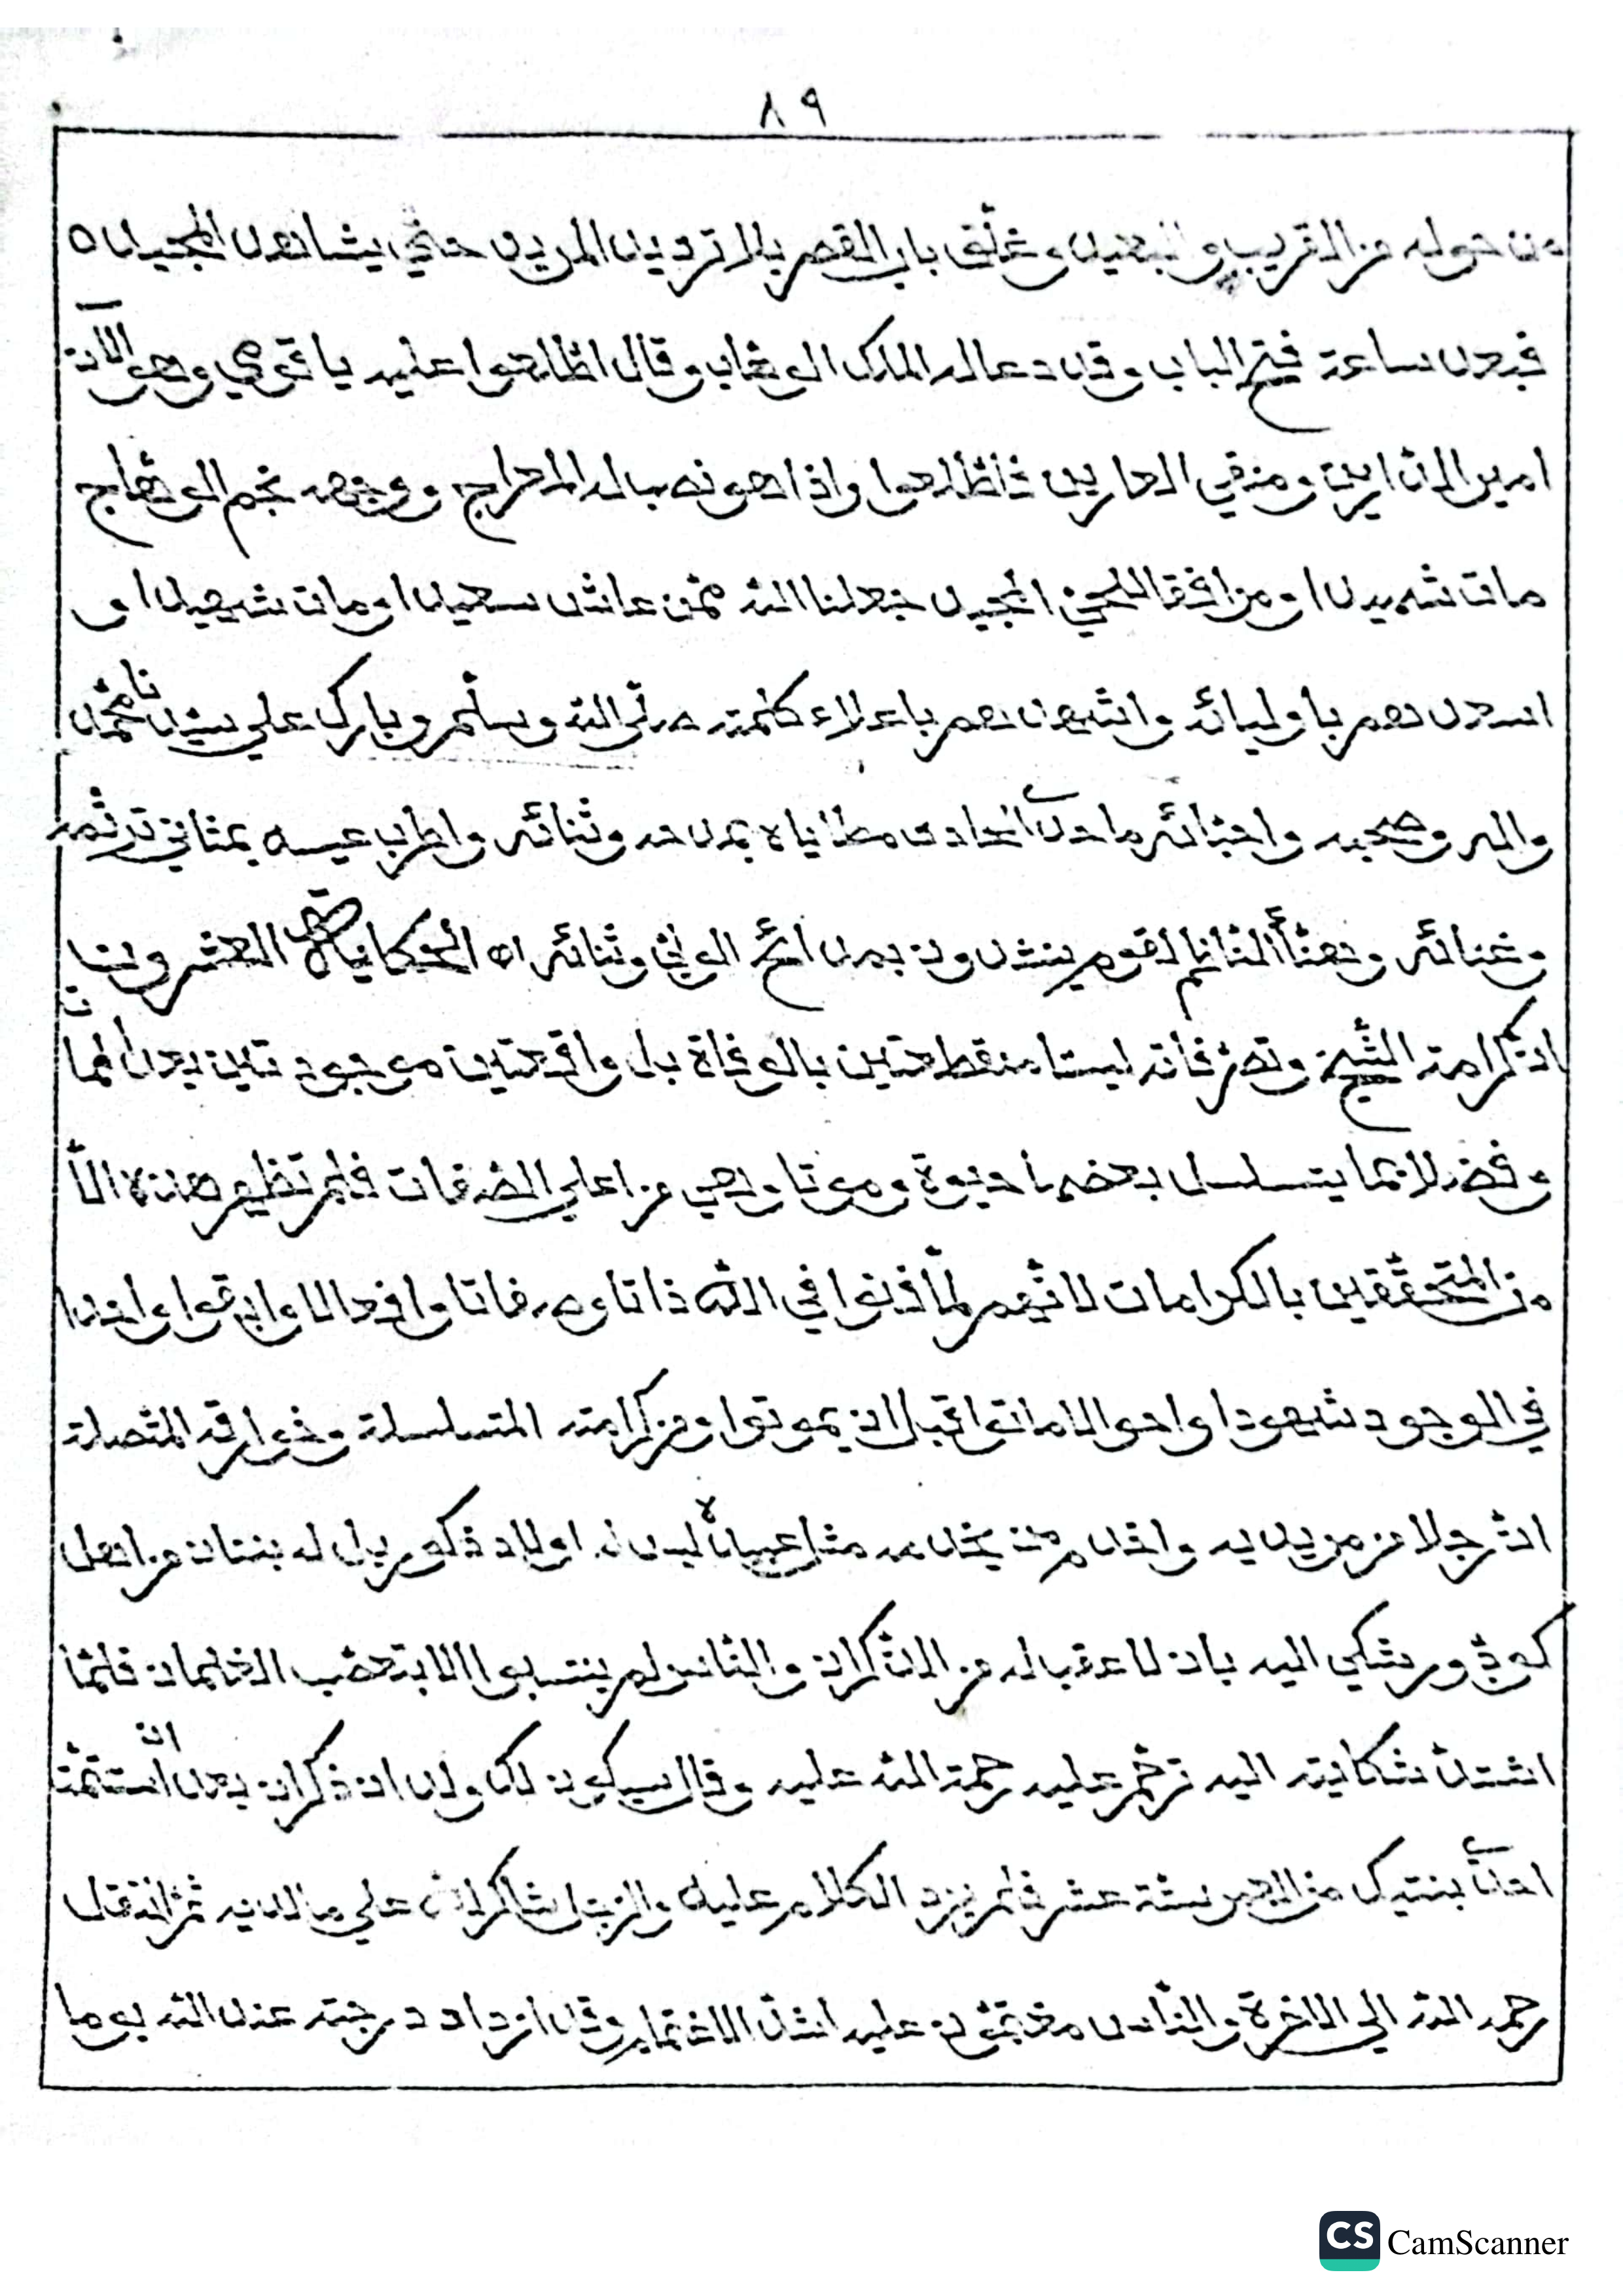 ٨٩
من حوله من القريب والبعيد وغلّق باب القصر بلا ترديد المريد حتّي يشاهد المجيد ه
فبعد ساعة فتح الباب وقد دعا له الملك الوهّاب وقال اطّلعوا عليه يا قومي وهو الآن
امير الدّارين ومنقي العارين فاطّلعوا واذا هو نه باله المعراج ووجهه نجم الوهّاج
مات شهيدا ومرافقا للحيّ المجيد جعلنا اللّه ممّن عاش سعيدا ومات شهيدا و
اسعدهم باوليائه واشهدهم باعلاء كلمته صلّي اللّه وسلّم وبارك علي سيّدنا محمّد
واله وصحبه واحبّائه ما حدي الحادي مطاياه بمدحه وثنائه واطرب عيسه بمثاني ترنّمه
وغنائه وهنّأ الثّانيّ لقوم ينشدون بمدائح الوليّ وثنائه اه الحكاية العشرون
انّ كرامة الشّيخ وتصرّفاته ليستا منقطعتين بالوفاة بل واقعتين موجودتين بعدها لمّا
وفضلا نما يتسلسل بعضها حيوة وموتا وهي من اعلي الصّفات فلم تظهر هذه الّا
من المتحقّقين بالكرامات لانّهم لمّا فنوا في اللّه ذاتا وصفاتا وافعالا وابقوا واحدا
في الوجود شهودا واحوالا ماتوا قبل ان يموتوا ومن كرامته المتسلسلة وخوارقه المتّصلة
انّ رجلا من مريديه واحد ممّن يخدمه مثل عبيده ليس له اولاد ذكور بل له بنتان من اهل
كوڊّور شكي اليه بان لا عقب له من الذّكران والنّاس لم ينتسبوا الا بتعصّب الغلمان فلمّا
اشتدّ شكايته اليه ترحّم عليه رحمة اللّه عليه وقال سيكون لك ولدان ذكران بعد ان استتمّت
احدي بنتيك من العمر ستّة عشر فلم يزد الكلام عليه والرجل شاكر له علي ما لديه ثمّ انتقل
رحمه اللّه الي الاخرة والنّاس مغتمّون عليه اشدّ الاغتمام وقد ازداد درجته عند اللّه يوما
CS CamScanner